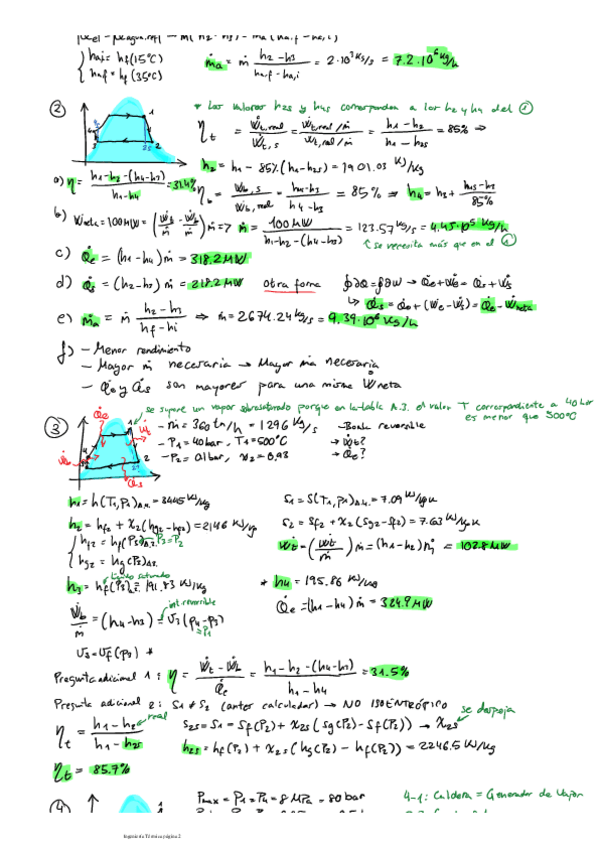 hai = hf(15°C)
haf = hf(35°C)
ṁa = ṁ (h2-h3)/(ha,f-ha,i) = 2·10³ Kg/s = 7.2·10⁶ Kg/h
②
* Los valores h2s y h4s corresponden a los h2 y h4 del ①
ηt = Ẇt,real/Ẇt,s = (Ẇt,real/ṁ)/(Ẇt,s/ṁ) = (h1-h2)/(h1-h2s) = 85% ⇒
h2 = h1 - 85%(h1-h2s) = 1901.03 KJ/Kg
a) η = (h1-h2-(h4-h3))/(h1-h4) = 31.4%
ηb = Ẇb,s/Ẇb,real = (h4s-h3)/(h4-h3) = 85% ⇒ h4 = h3 + (h4s-h3)/85%
b) Ẇneta = 100MW = (Ẇt/ṁ - Ẇb/ṁ)ṁ => ṁ = 100MW/(h1-h2-(h4-h3)) = 123.57 Kg/s = 4.45·10⁵ Kg/h
↑ se necesita más que en el ①
c) Q̇e = (h1-h4)ṁ = 318.2MW
d) Q̇s = (h2-h3)ṁ = 218.2MW otra forma ∮∂Q=∮∂W → Q̇e+Ẇe = Q̇s+Ẇs
↳ Q̇s = Q̇e + (Ẇe-Ẇs) = Q̇e - Ẇneta
e) ṁa = ṁ (h2-h3)/(hf-hi) ⇒ ṁ = 2674.24 Kg/s = 9.39·10⁶ Kg/h
f) - Menor rendimiento
- Mayor ṁ necesaria → Mayor ṁa necesaria
- Q̇e y Q̇s son mayores para una misma Ẇneta
se supone un vapor sobresaturado porque en la tabla A.3. el valor T correspondiente a 40bar es menor que 500°C
③
- ṁ = 360 tn/h = 1296 Kg/s - Bomba reversible
- P1 = 40bar, T1 = 500°C - Ẇt?
- P2 = 0.1bar, x2 = 0.93 - Q̇e?
h1 = h(T1,P1)A.4. = 3445 KJ/Kg
s1 = s(T1,P1)A.4. = 7.09 KJ/KgK
h2 = hf2 + x2(hg2-hf2) = 2146 KJ/Kg
s2 = sf2 + x2(sg2-sf2) = 7.63 KJ/KgK
hf2 = hf(P3)A.3. P3=P2
hg2 = hg(P2)A.3.
Ẇt = (Ẇt/ṁ)ṁ = (h1-h2)ṁ = 102.8MW
líquido saturado
h3 = hf(P3)A.3. = 191.83 KJ/Kg
* h4 = 195.86 KJ/Kg
Q̇e = (h1-h4)ṁ = 324.9MW
int. reversible
Ẇb/ṁ = (h4-h3) = v3(p4-p3)
=P1
v3 = vf(p3) *
Pregunta adicional 1: η = (Ẇt-Ẇb)/Q̇e = (h1-h2-(h4-h3))/(h1-h4) = 31.5%
Pregunta adicional 2: s1 ≠ s2 (antes calculadas) → NO ISOENTRÓPICO
se despeja
ηt = (h1-h2)/(h1-h2s) real
s2s = s1 = sf(P2) + x2s(sg(P2)-sf(P2)) → x2s
h2s = hf(P2) + x2s(hg(P2)-hf(P2)) = 2246.5 KJ/Kg
ηt = 85.7%
④
Pmax = P1 = P4 = 8 MPa = 80bar
4-1: Caldera = Generador de Vapor
Ingeniería Térmica página 2